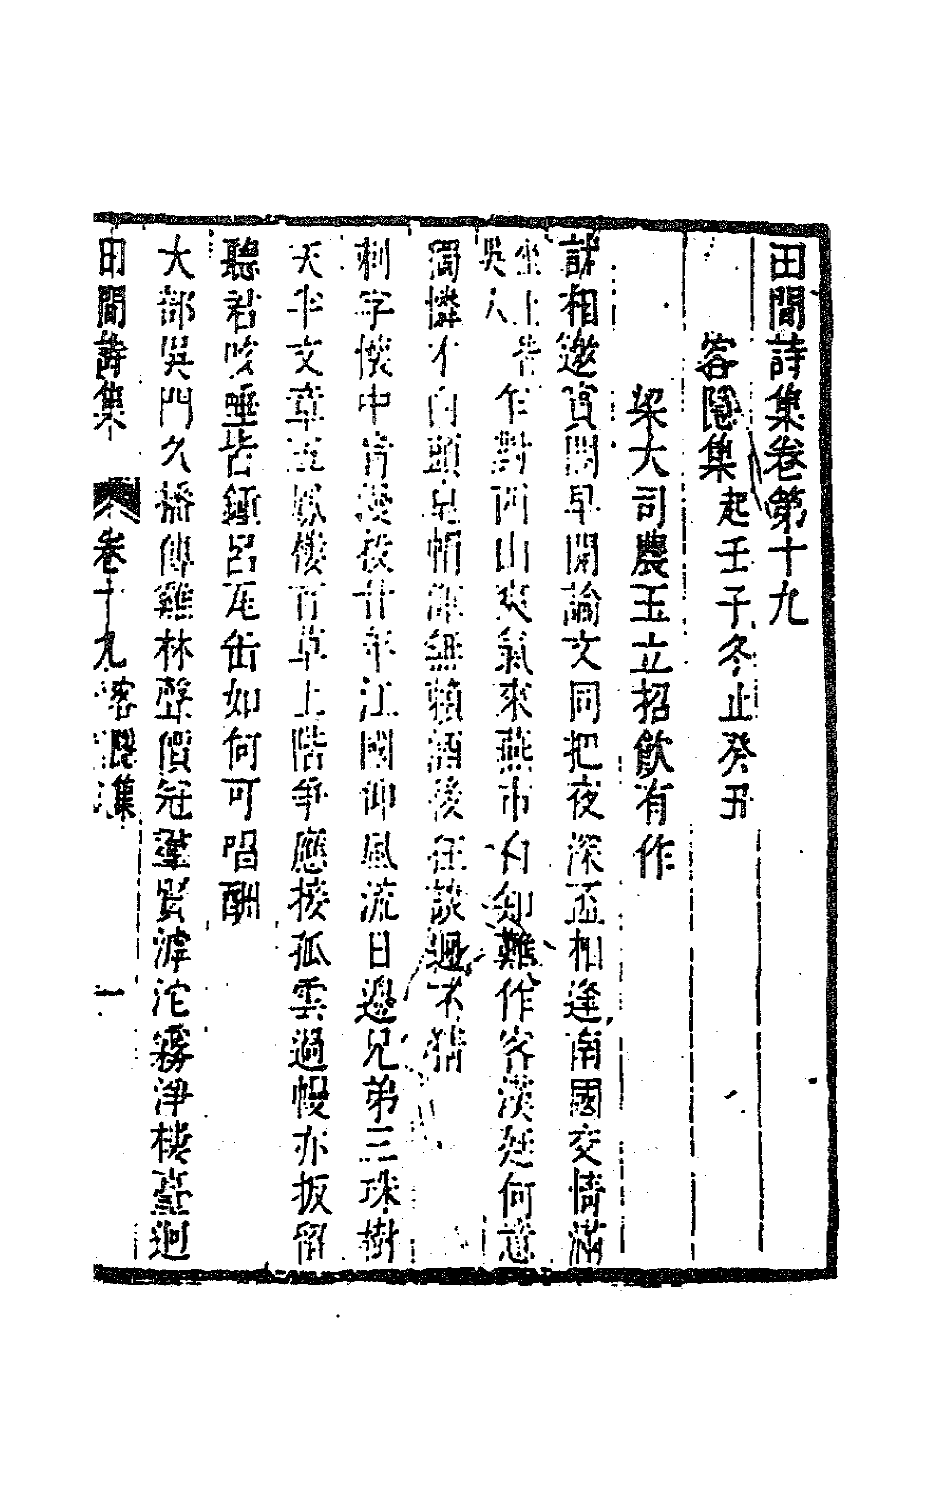 田間詩集卷第十九
客隱集起壬子冬止癸丑
梁大司農玉立招飲有作
相邀賓閣早開論文同把夜深盃相逢南國交情滿
坐上皆吳人乍對西山爽氣來燕市自知難作客漢廷何意
獨憐才白頭兄帽渾無賴酒後狂談週不猜
刺字懷中肯漫投廿年江國仰風流日邊兄弟三珠樹
天半文章五鳳樓百草上階爭應接孤雲過幔亦扳留
聽君咳唾皆鐘呂瓦缶如何可唱酬
大部吳門久播傳雞林聲價冠羣賢滹沱霧淨棲臺迥
田間詩集 卷十九 客隱集 一